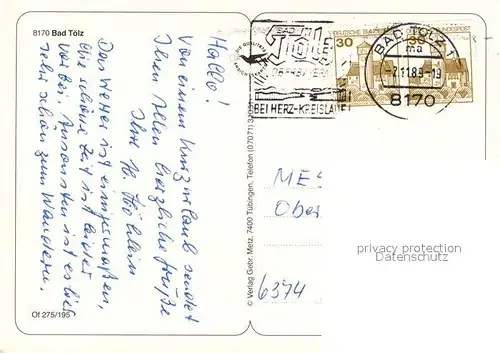 8170 Bad Tölz
Hallo!
Von einem Kurzurlaub sendet
Ihnen Allen herzliche Grüße
Ihre
Das Wetter ist einigermaßen,
die schöne Zeit ist leider
vorbei. Ansonsten ist es hier
sehr schön zum Wandern.
Of 275/195
© Verlag Gebr. Metz, 7400 Tübingen, Telefon (07071)
BAD
TÖLZ
OBERBAYERN
BEI HERZ-KREISLAUF
30
35
DEUTSCHE BUNDESPOST
BAD TÖLZ 1
ma
-2.11.89-19
8170
ME
Obe
6374
privacy protection
Datenschutz